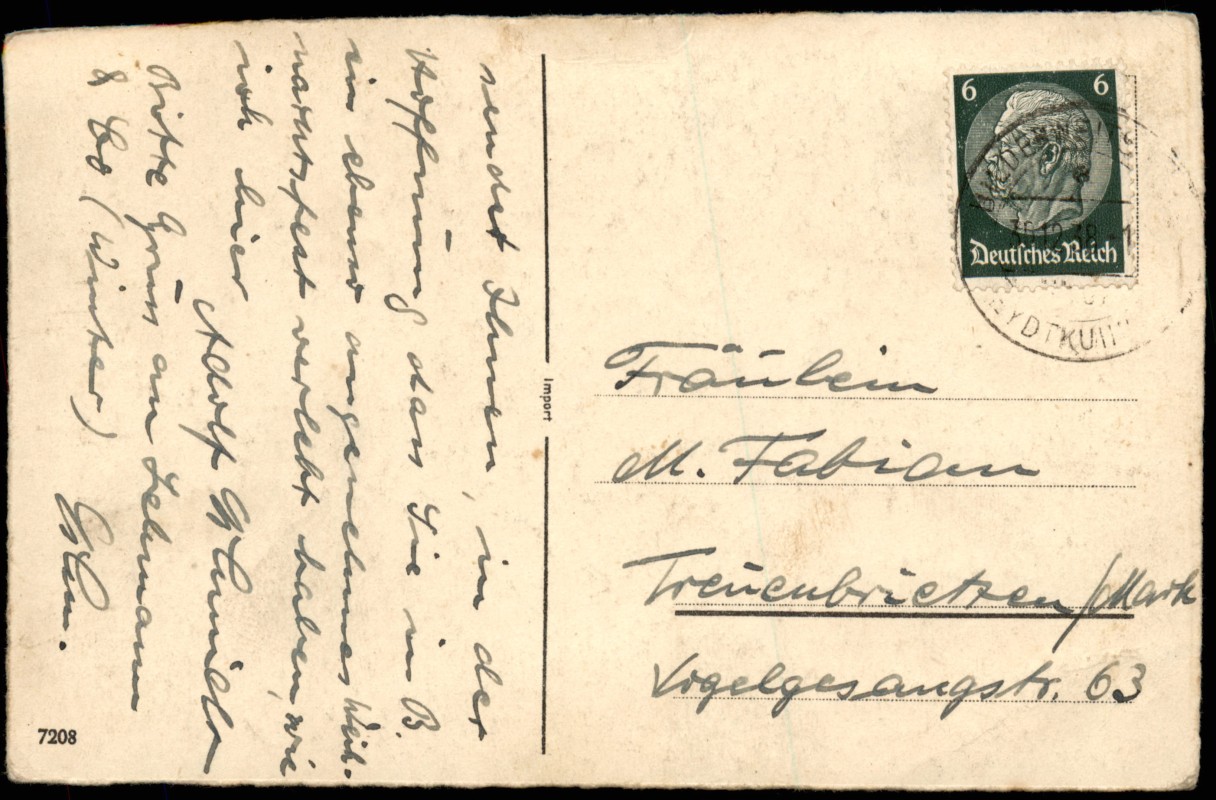 sendet Ihnen, in der
Hoffnung dass Sie in B.
ein ebenso angenehmes Weih-
nachtsfest verlebt haben, wie
ich hier
Adolf Schmidt
Bitte Gruss an Lehmann
& Co (Winter)
Import
7208
6 6
Deutsches Reich
Fräulein
M. Fabian
Treuenbrietzen/Mark
Vogelgesangstr. 63